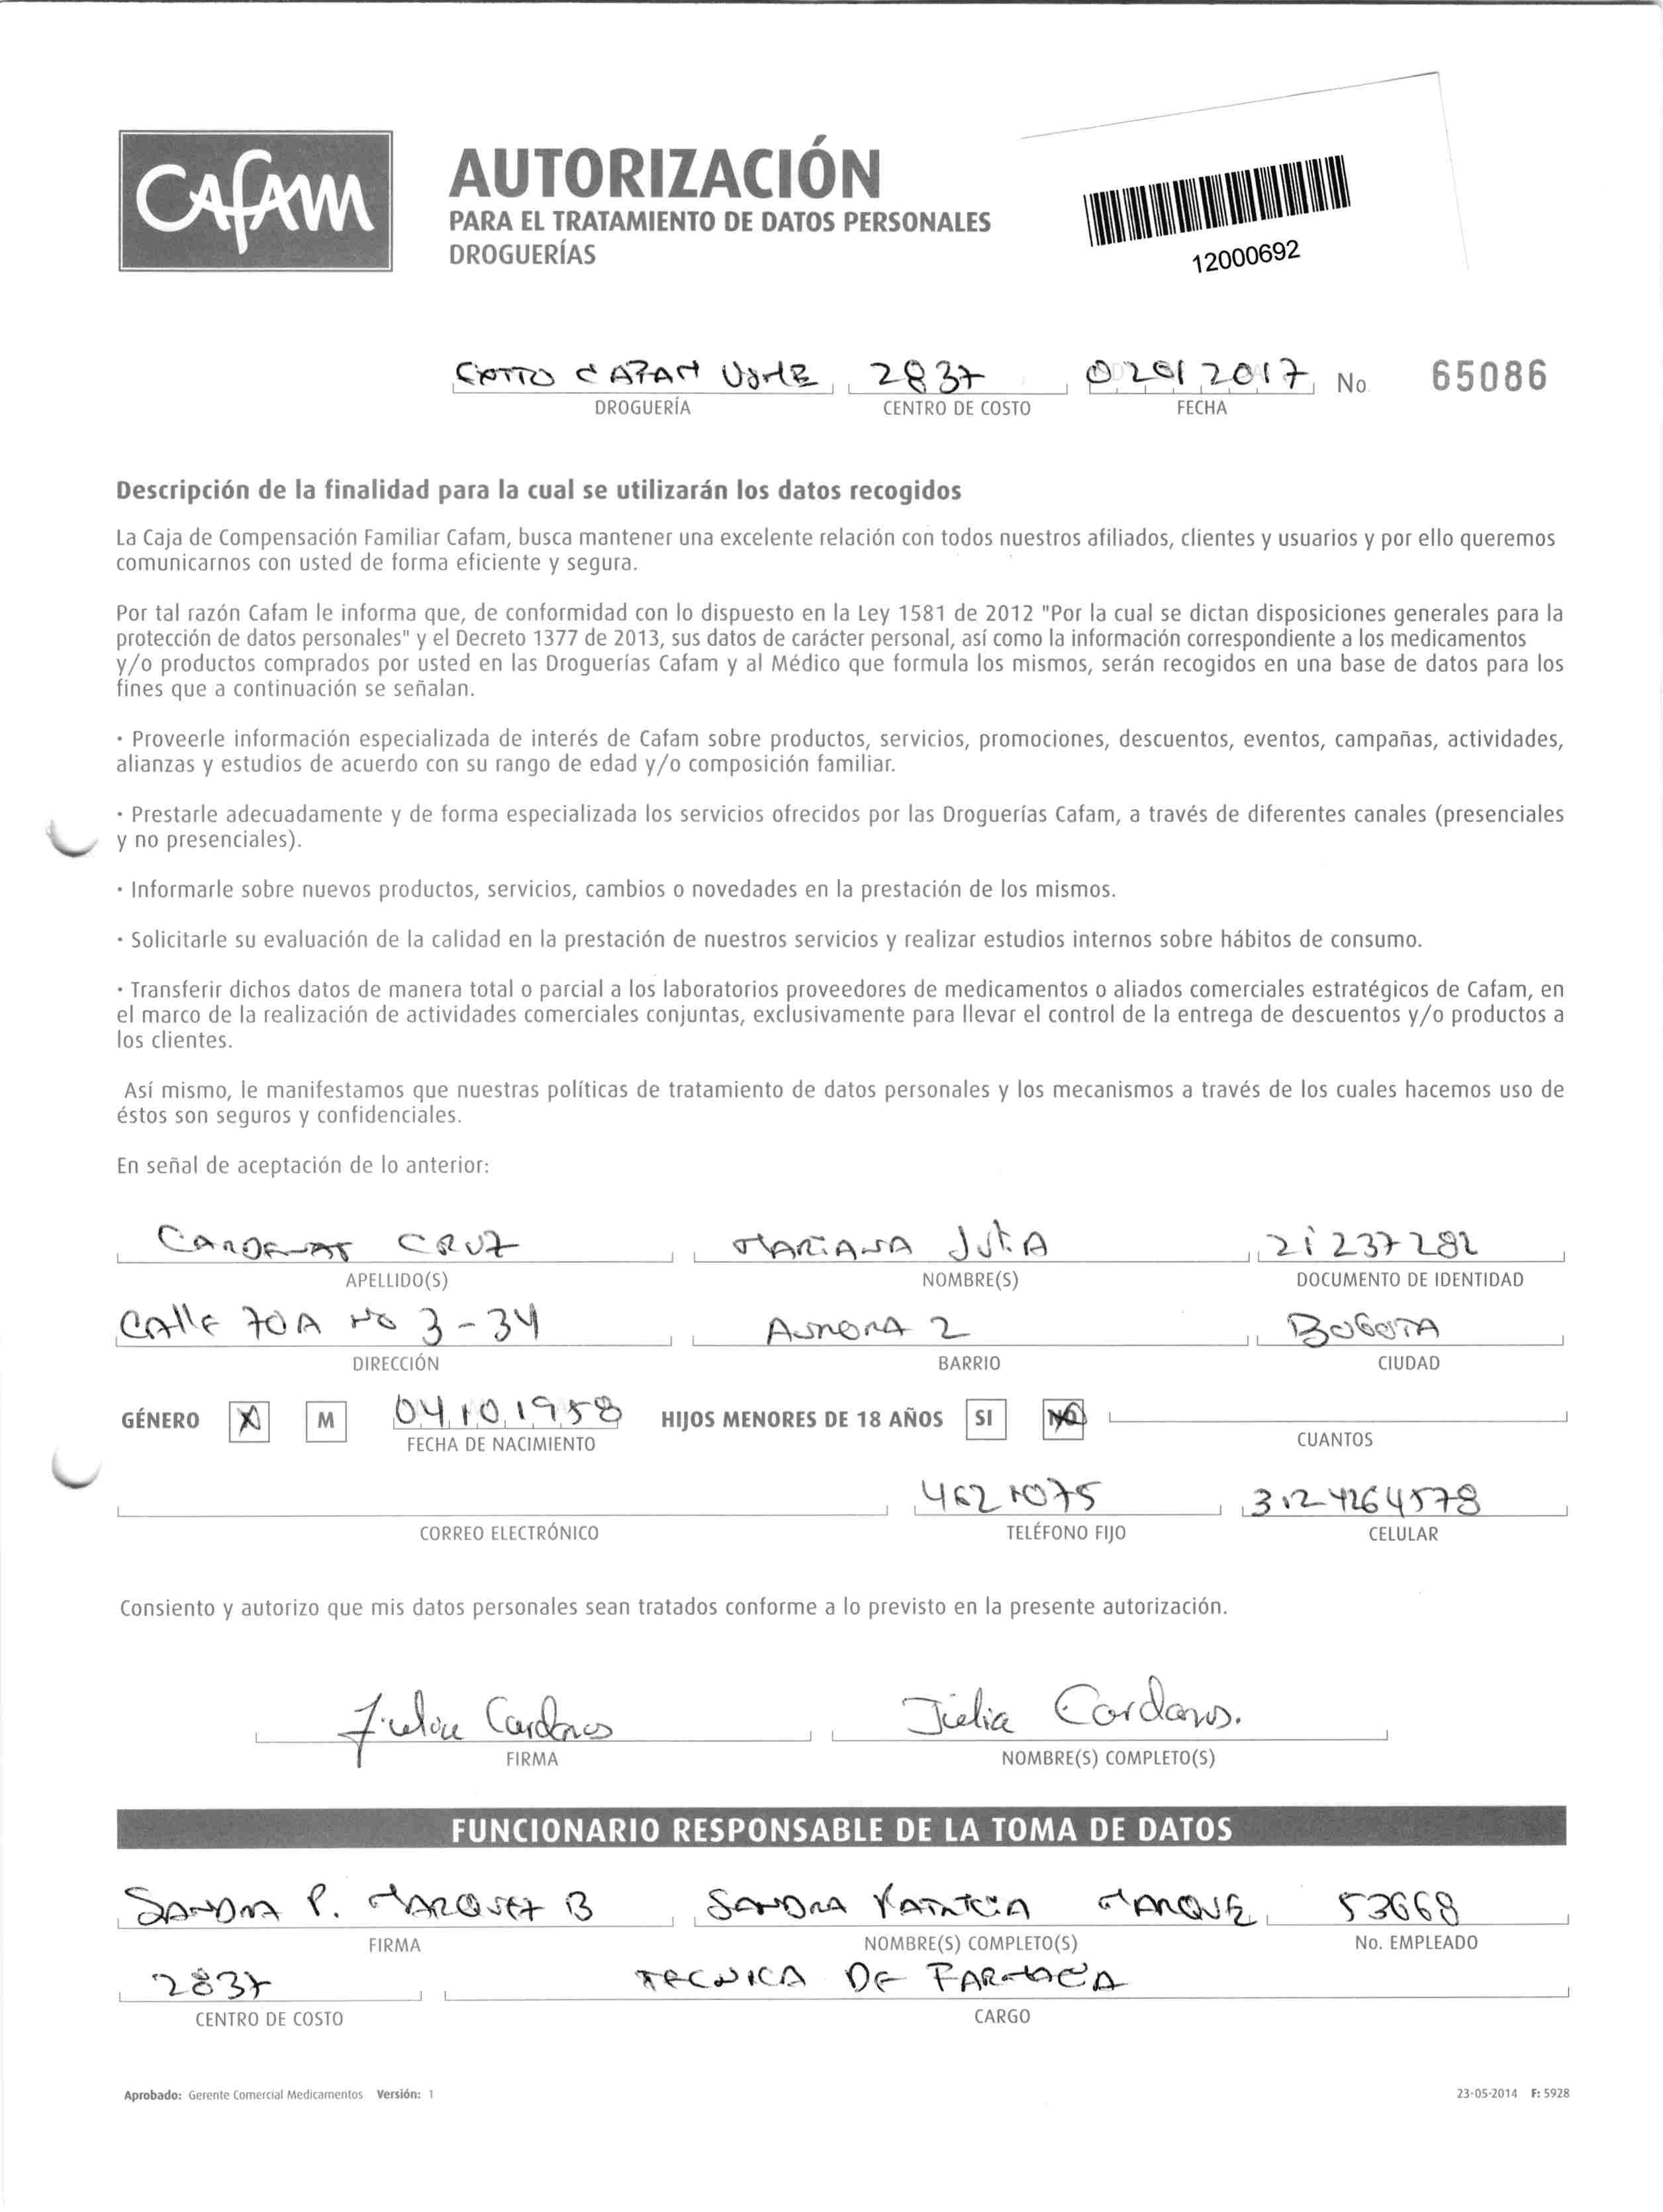 CAFAM
AUTORIZACIÓN
PARA EL TRATAMIENTO DE DATOS PERSONALES
DROGUERÍAS
12000692
CAFAM 2837 02012017 No 65086
DROGUERÍA CENTRO DE COSTO FECHA
Descripción de la finalidad para la cual se utilizarán los datos recogidos
La Caja de Compensación Familiar Cafam, busca mantener una excelente relación con todos nuestros afiliados, clientes y usuarios y por ello queremos
comunicarnos con usted de forma eficiente y segura.
Por tal razón Cafam le informa que, de conformidad con lo dispuesto en la Ley 1581 de 2012 "Por la cual se dictan disposiciones generales para la
protección de datos personales" y el Decreto 1377 de 2013, sus datos de carácter personal, así como la información correspondiente a los medicamentos
y/o productos comprados por usted en las Droguerías Cafam y al Médico que formula los mismos, serán recogidos en una base de datos para los
fines que a continuación se señalan.
· Proveerle información especializada de interés de Cafam sobre productos, servicios, promociones, descuentos, eventos, campañas, actividades,
alianzas y estudios de acuerdo con su rango de edad y/o composición familiar.
· Prestarle adecuadamente y de forma especializada los servicios ofrecidos por las Droguerías Cafam, a través de diferentes canales (presenciales
y no presenciales).
· Informarle sobre nuevos productos, servicios, cambios o novedades en la prestación de los mismos.
· Solicitarle su evaluación de la calidad en la prestación de nuestros servicios y realizar estudios internos sobre hábitos de consumo.
· Transferir dichos datos de manera total o parcial a los laboratorios proveedores de medicamentos o aliados comerciales estratégicos de Cafam, en
el marco de la realización de actividades comerciales conjuntas, exclusivamente para llevar el control de la entrega de descuentos y/o productos a
los clientes.
Así mismo, le manifestamos que nuestras políticas de tratamiento de datos personales y los mecanismos a través de los cuales hacemos uso de
éstos son seguros y confidenciales.
En señal de aceptación de lo anterior:
CARDENAS CRUZ MARIANA JULIA 21237282
APELLIDO(S) NOMBRE(S) DOCUMENTO DE IDENTIDAD
Calle 70A No 3-34 AURORA 2 BOGOTA
DIRECCIÓN BARRIO CIUDAD
GÉNERO X M 04101958 HIJOS MENORES DE 18 AÑOS SI NO
FECHA DE NACIMIENTO CUANTOS
4621075 3124264578
CORREO ELECTRÓNICO TELÉFONO FIJO CELULAR
Consiento y autorizo que mis datos personales sean tratados conforme a lo previsto en la presente autorización.
Julia Cardenas Julia Cardenas.
FIRMA NOMBRE(S) COMPLETO(S)
FUNCIONARIO RESPONSABLE DE LA TOMA DE DATOS
SANDRA P. MARQUEZ B SANDRA PATRICIA MARQUE 53668
FIRMA NOMBRE(S) COMPLETO(S) No. EMPLEADO
2837 TECNICA DE FARMACIA
CENTRO DE COSTO CARGO
Aprobado: Gerente Comercial Medicamentos Versión: 1 23-05-2014 F: 5928